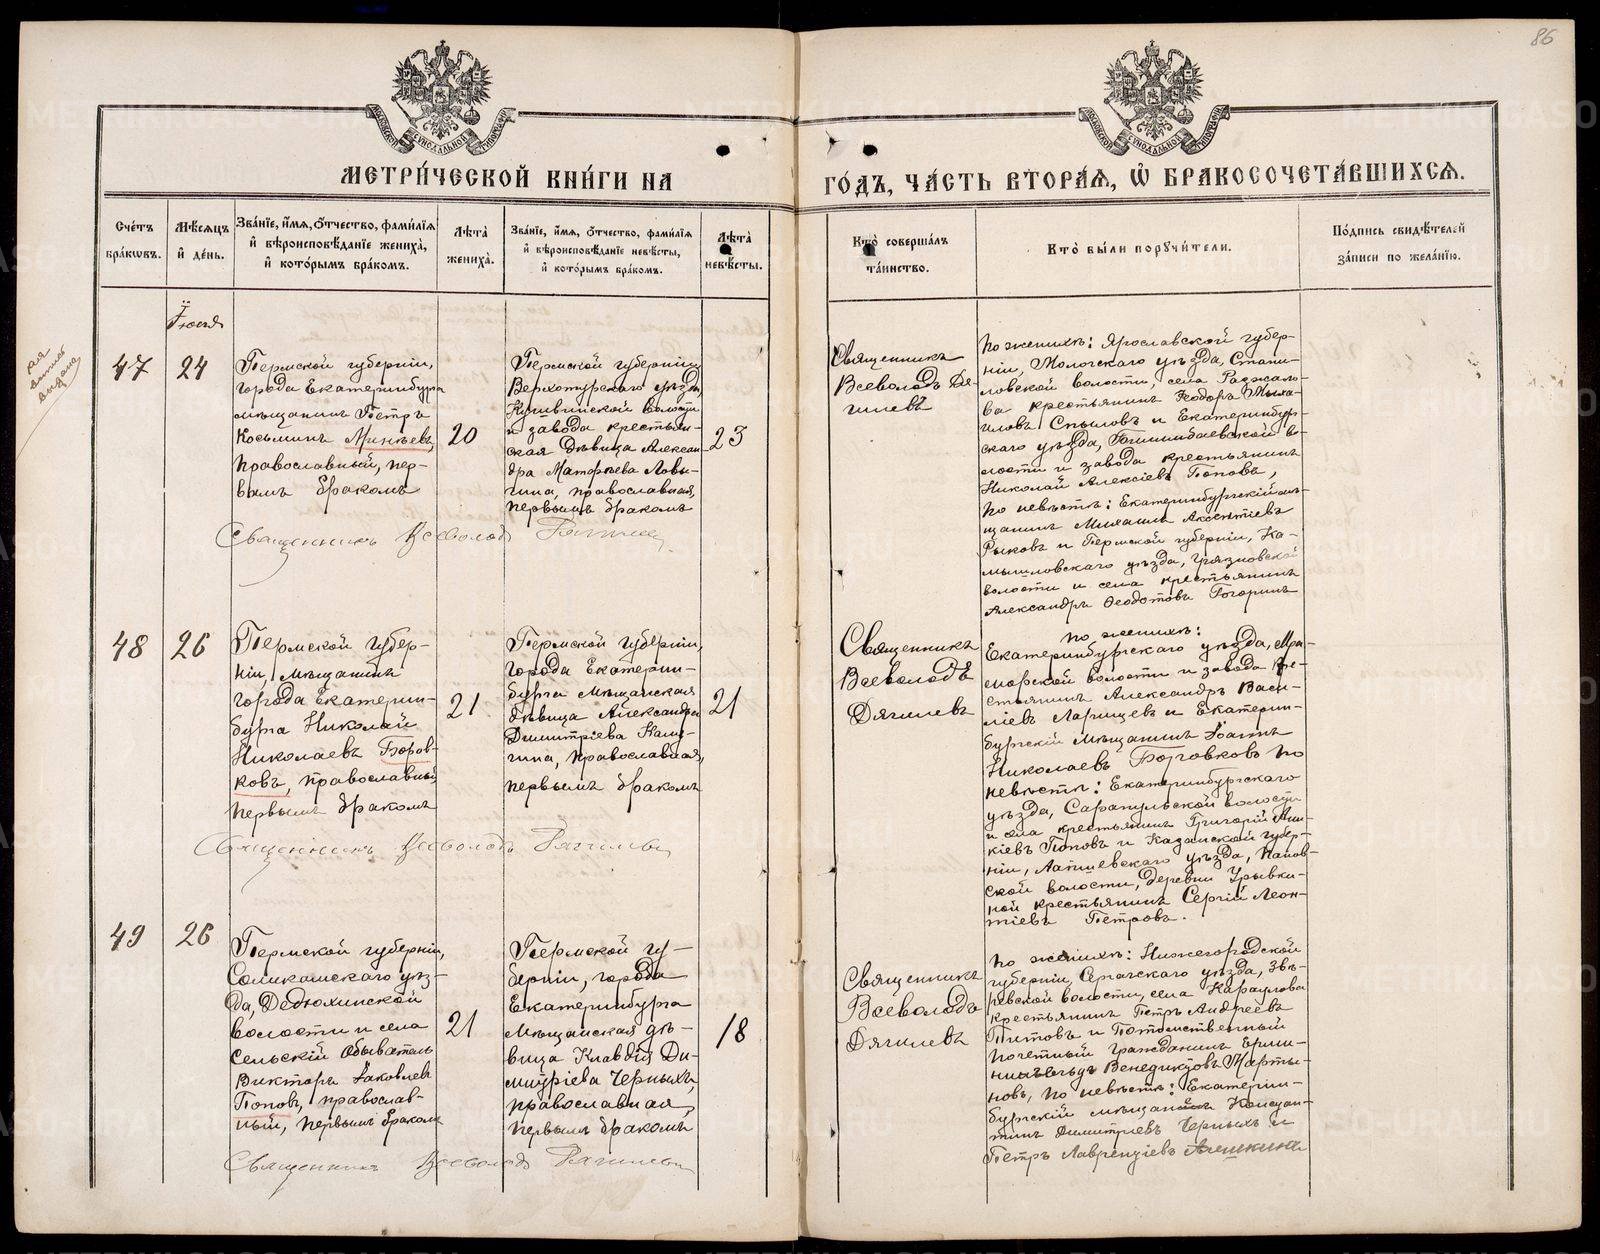 86
МЕТРИ́ЧЕСКОЙ КНИ́ГИ НА
ГО́ДЪ, ЧА́СТЬ ВТОРА́Я, Ѽ БРАКОСОЧЕТА́ВШИХСЯ.
Сче́тъ бра́кѡвъ.
Мѣ́сяцъ и҆ де́нь.
Зва́нїе, и҆́мя, ѻ҆́тчество, фами́лїя
и҆ вѣроисповѣ́данїе жениха̀,
и҆ кото́рымъ бра́комъ.
Лѣ́та жениха̀.
Зва́нїе, и҆́мя, ѻ҆́тчество, фами́лїя
и҆ вѣроисповѣ́данїе невѣ́сты,
и҆ кото́рымъ бра́комъ.
Лѣ́та невѣ́сты.
Кто̀ соверша́лъ
та́инство.
Кто̀ бы́ли пору́чи́тели.
По́дпись свидѣ́телей
за́писи по жела́нїю.
Іюля
47
24
Пермской губерніи,
города Екатеринбурга
мѣщанинъ Петръ
Косьминъ Минѣевъ,
православный, пер-
вымъ бракомъ
20
Пермской губерніи
Верхотурскаго уѣзда,
Кушвинской волости
и завода крестьян-
ская дѣвица Алексан-
дра Матфѣева Ловы-
гина, православная,
первымъ бракомъ
23
Священникъ
Всеволодъ Дя-
гилевъ
По женихѣ: Ярославской губер-
ніи, Мологскаго уѣзда, Стани-
ловской волости, села
крестьянинъ Ѳеодоръ Миха-
иловъ Спыловъ и Екатеринбург-
скаго уѣзда, Билимбаевской во-
лости и завода крестьянинъ
Николай Алексіевъ Поповъ,
По невѣстѣ: Екатеринбургскій мѣ-
щанинъ Михаилъ Аксентіевъ
Рыковъ и Пермской губерніи, Ка-
мышловскаго уѣзда, Грязновской
волости и села крестьянинъ
Александръ Ѳеодотовъ
Священникъ Всеволодъ Дягилевъ
48
26
Пермской губер-
ніи, мѣщанинъ
города Екатерин-
бурга Николай
Николаевъ Боров-
ковъ, православный,
первымъ бракомъ
21
Пермской губерніи,
города Екатерин-
бурга мѣщанская
дѣвица Александра
Димитріева Калу-
гина, православная,
первымъ бракомъ
21
Священникъ
Всеволодъ
Дягилевъ
по женихѣ:
Екатеринбургскаго уѣзда, Мра-
морской волости и завода кре-
стьянинъ Александръ Васи-
ліевъ Ларищевъ и Екатерин-
бургскій мѣщанинъ Іоаннъ
Николаевъ Боровковъ по
невѣстѣ: Екатеринбургскаго
уѣзда, Сарапульской волости
и села крестьянинъ Григорій Ани-
кіевъ Поповъ и Казанской губер-
ніи, Лаишевскаго уѣзда,
ской волости, деревни
крестьянинъ Сергій Леон-
тіевъ Петровъ.
Священникъ Всеволодъ Дягилевъ
49
26
Пермской губерніи,
Соликамскаго уѣз-
да, Дедюхинской
волости и села
сельскій обыватель
Викторъ Іаковлевъ
Поповъ, православ-
ный, первымъ бракомъ
21
Пермской гу-
берніи, города
Екатеринбурга
мѣщанская дѣ-
вица Клавдія Ди-
митріева Черныхъ,
православная,
первымъ бракомъ
18
Священникъ
Всеволодъ
Дягилевъ
по женихѣ: Нижегородской
губерніи, Сергачскаго уѣзда,
волости, села Караулова
крестьянинъ Петръ Андреевъ
Титовъ и Потомственный
почетный гражданинъ
Венедиктовъ Марты-
новъ, по невѣстѣ: Екатерин-
бургскій мѣщанинъ Констан-
тинъ Димитріевъ Черныхъ и
Петръ Лаврентіевъ
Священникъ Всеволодъ Дягилевъ